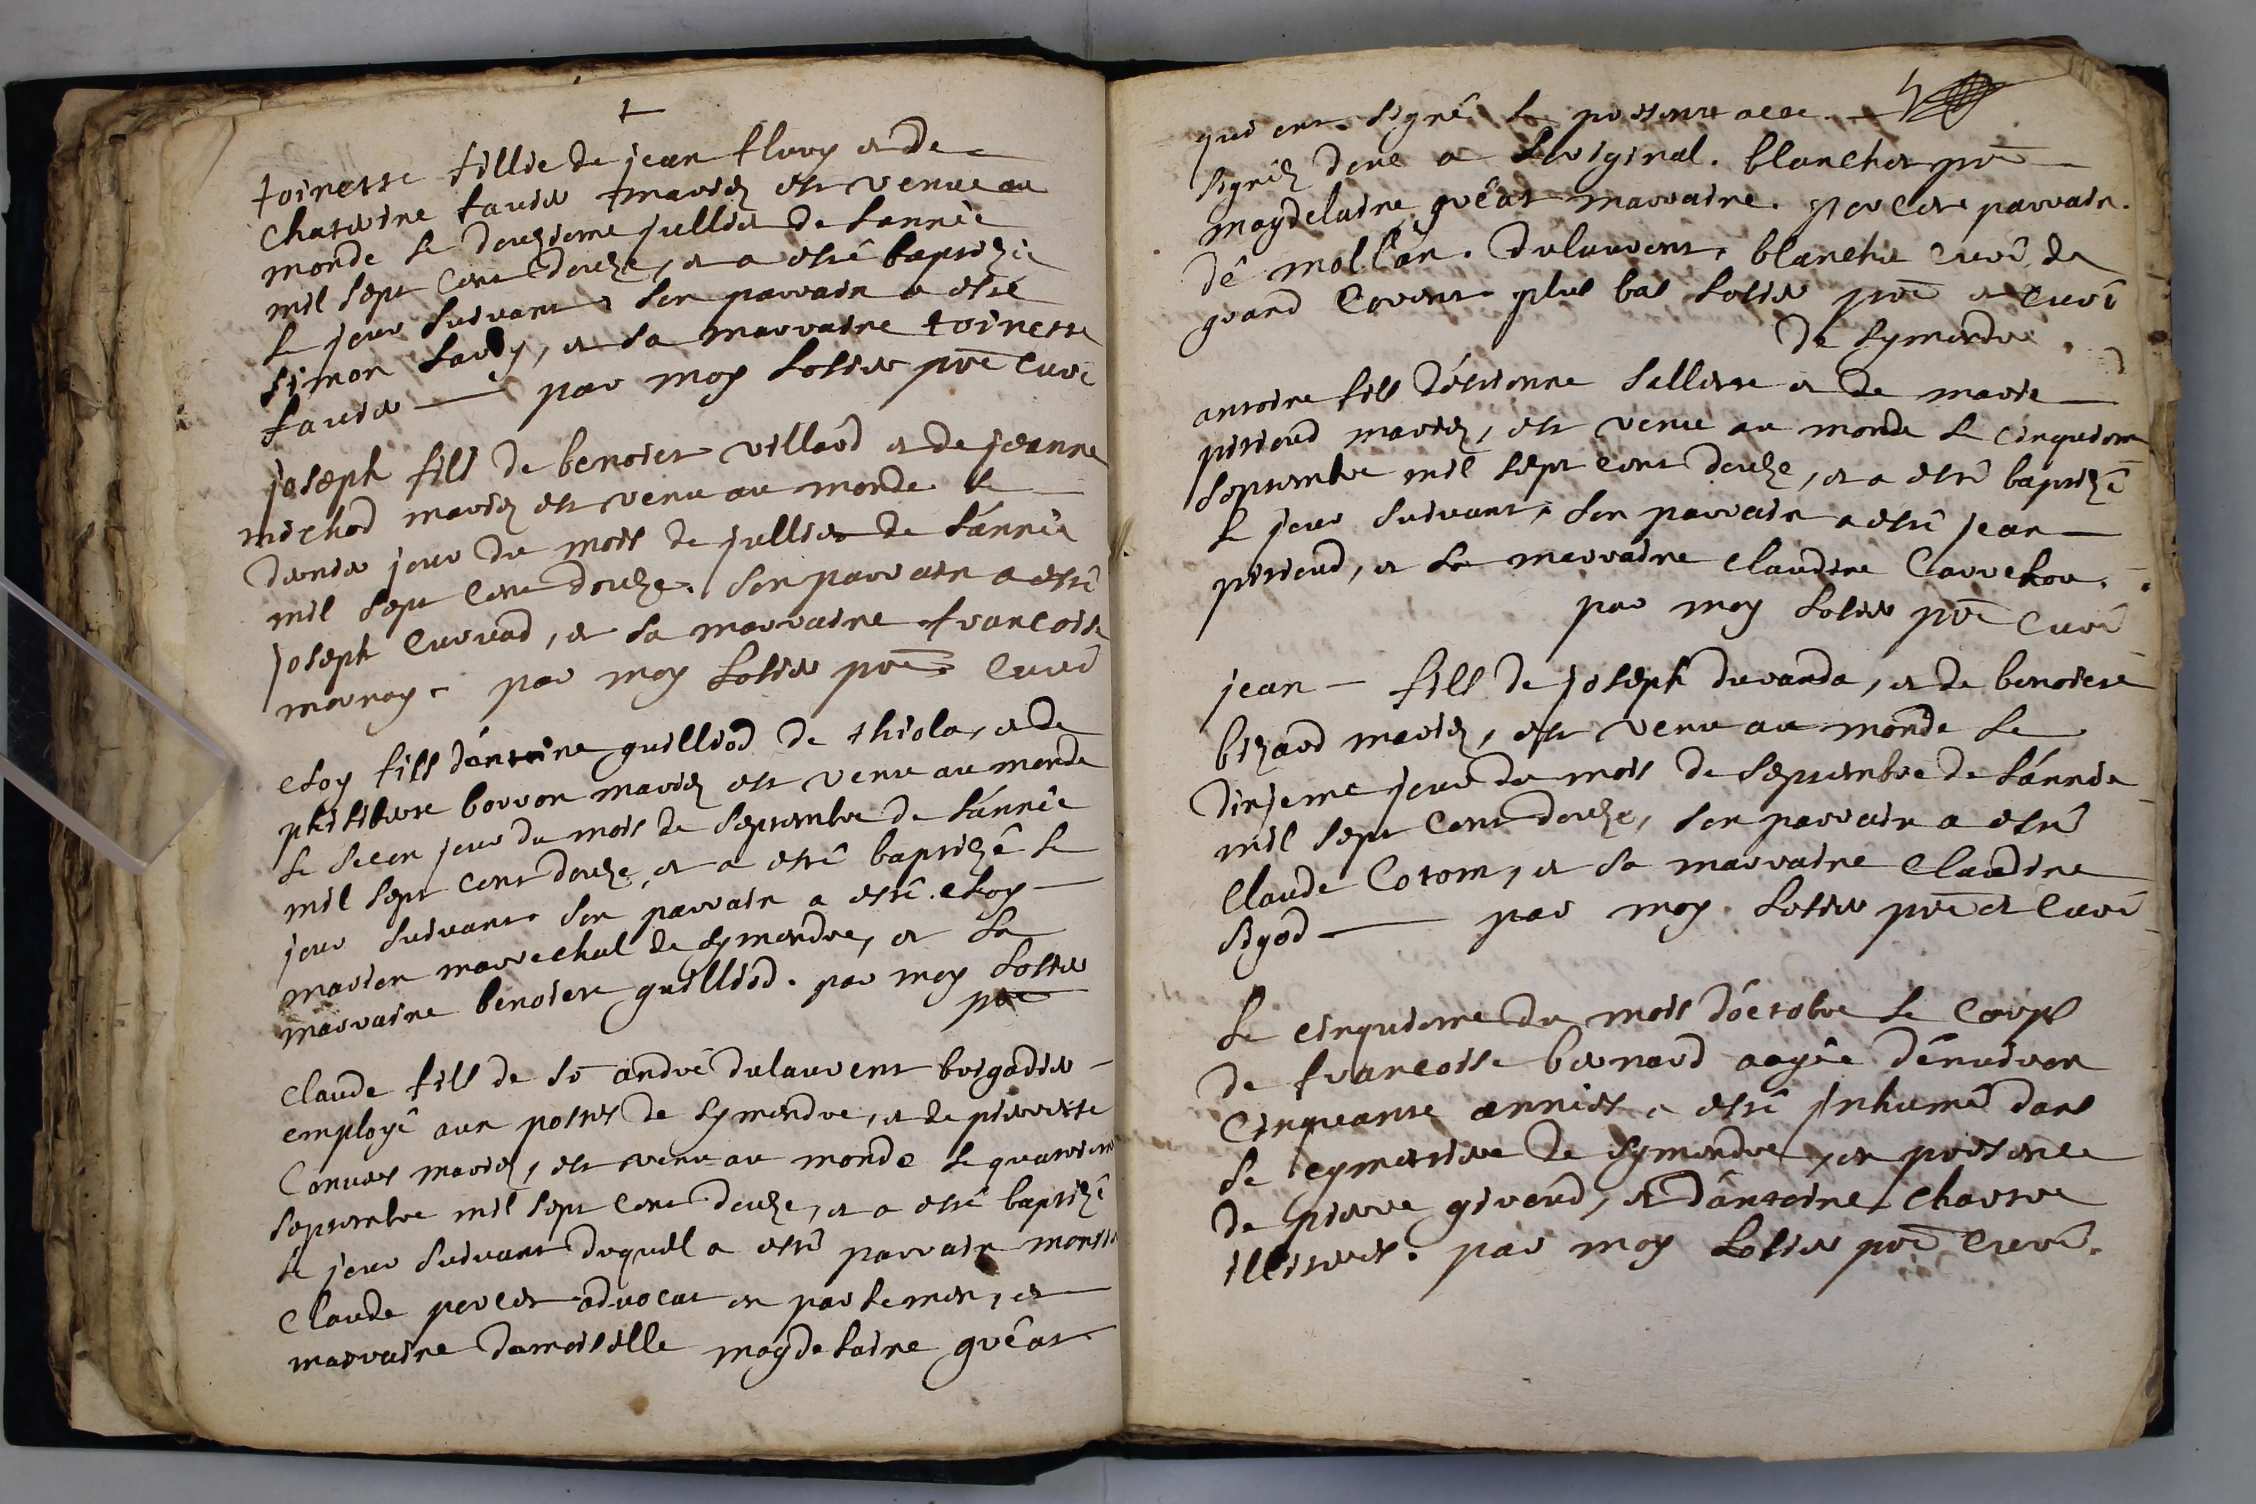 toinette fillie de jean flory et de
Chaterine favier mariez est venue au
monde le douzieme jullier de lannée
mil sept cent douze, et a esté baptizée
le jour suivant. son parrain a esté
simon savey, et sa marraine toinette
favier par moy Losier pre curé
joseph fils de benoict villard et de jeanne
michod mariez est venu au monde le
dernier jour du mois de jullier de lánnée
mil sept cent douze. son parrain a esté
joseph Curvad, et sa marraine francoise
mornay. par moy Losier pre curé
eloy fils dántoine guilliod de thiola, et de
philiberte borron mariez est venu au monde
le secon jour du mois de septembre de lánnée
mil sept cent douze, et a esté baptizé le
jour suivant. son parrain a esté eloy
marion marrechal de symendre, et sa
marraine benoiete guilliod. par moy Losier
pre
Claude fils de sr andré dulaurent brigadier
employé aux postes de symendre, et de pierrette
Convers mariez, est venu au monde le quatriem
septembre mil sept cent douze, et a esté baptizé
le jour suivant duquel a esté parrain monsie
Claude percet advocat en parlement, et
marraine damoiselle magdelaine gréat
qui ont signé le present acte.
signéz dene a loriginal. blanchet pre
magdelaine gréat marraine. percet parrain.
dé mollan. dulaurent, blanchet curé de
grand Corent plus bas Losier pre et curé
de symendre.
antoine fils déstienne sallerre et de marie
perioud mariez, est venu au monde le cinquiem
septembre mil sept cent douze, et a esté baptizé
le jour suivant, son parrain a esté jean
perioud, et la marraine claudine Carrehou.
par moy Losier pre curé
jean fils de joseph duranda, et de benoiete
bizard mariez, est venu au monde le
dixjeme jour du mois de septembre de lánnée
mil sept cent douze, son parrain a esté
Claude Cotom, et sa marraine Claudine
sigod par moy Losier pre et curé
Le cinquieme du mois dóctobre le corps
de francoise bernard aagée dénviron
Cinquante années a esté jnhumé dans
le cymetiere de symendre, en presence
de pierre girend, et dántoine chartre
illiterés. par moy Losier pre curé.